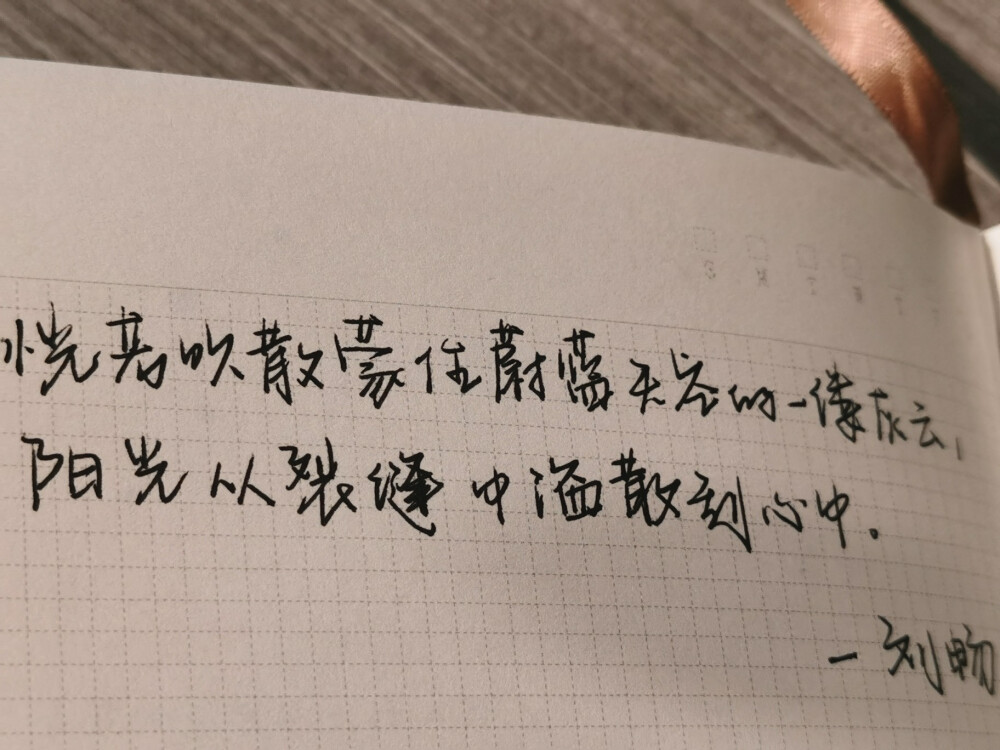 恍若吹散蒙住蔚蓝天谷的一缕灰云，
阳光从裂缝中洒散到心中。
一刘畅